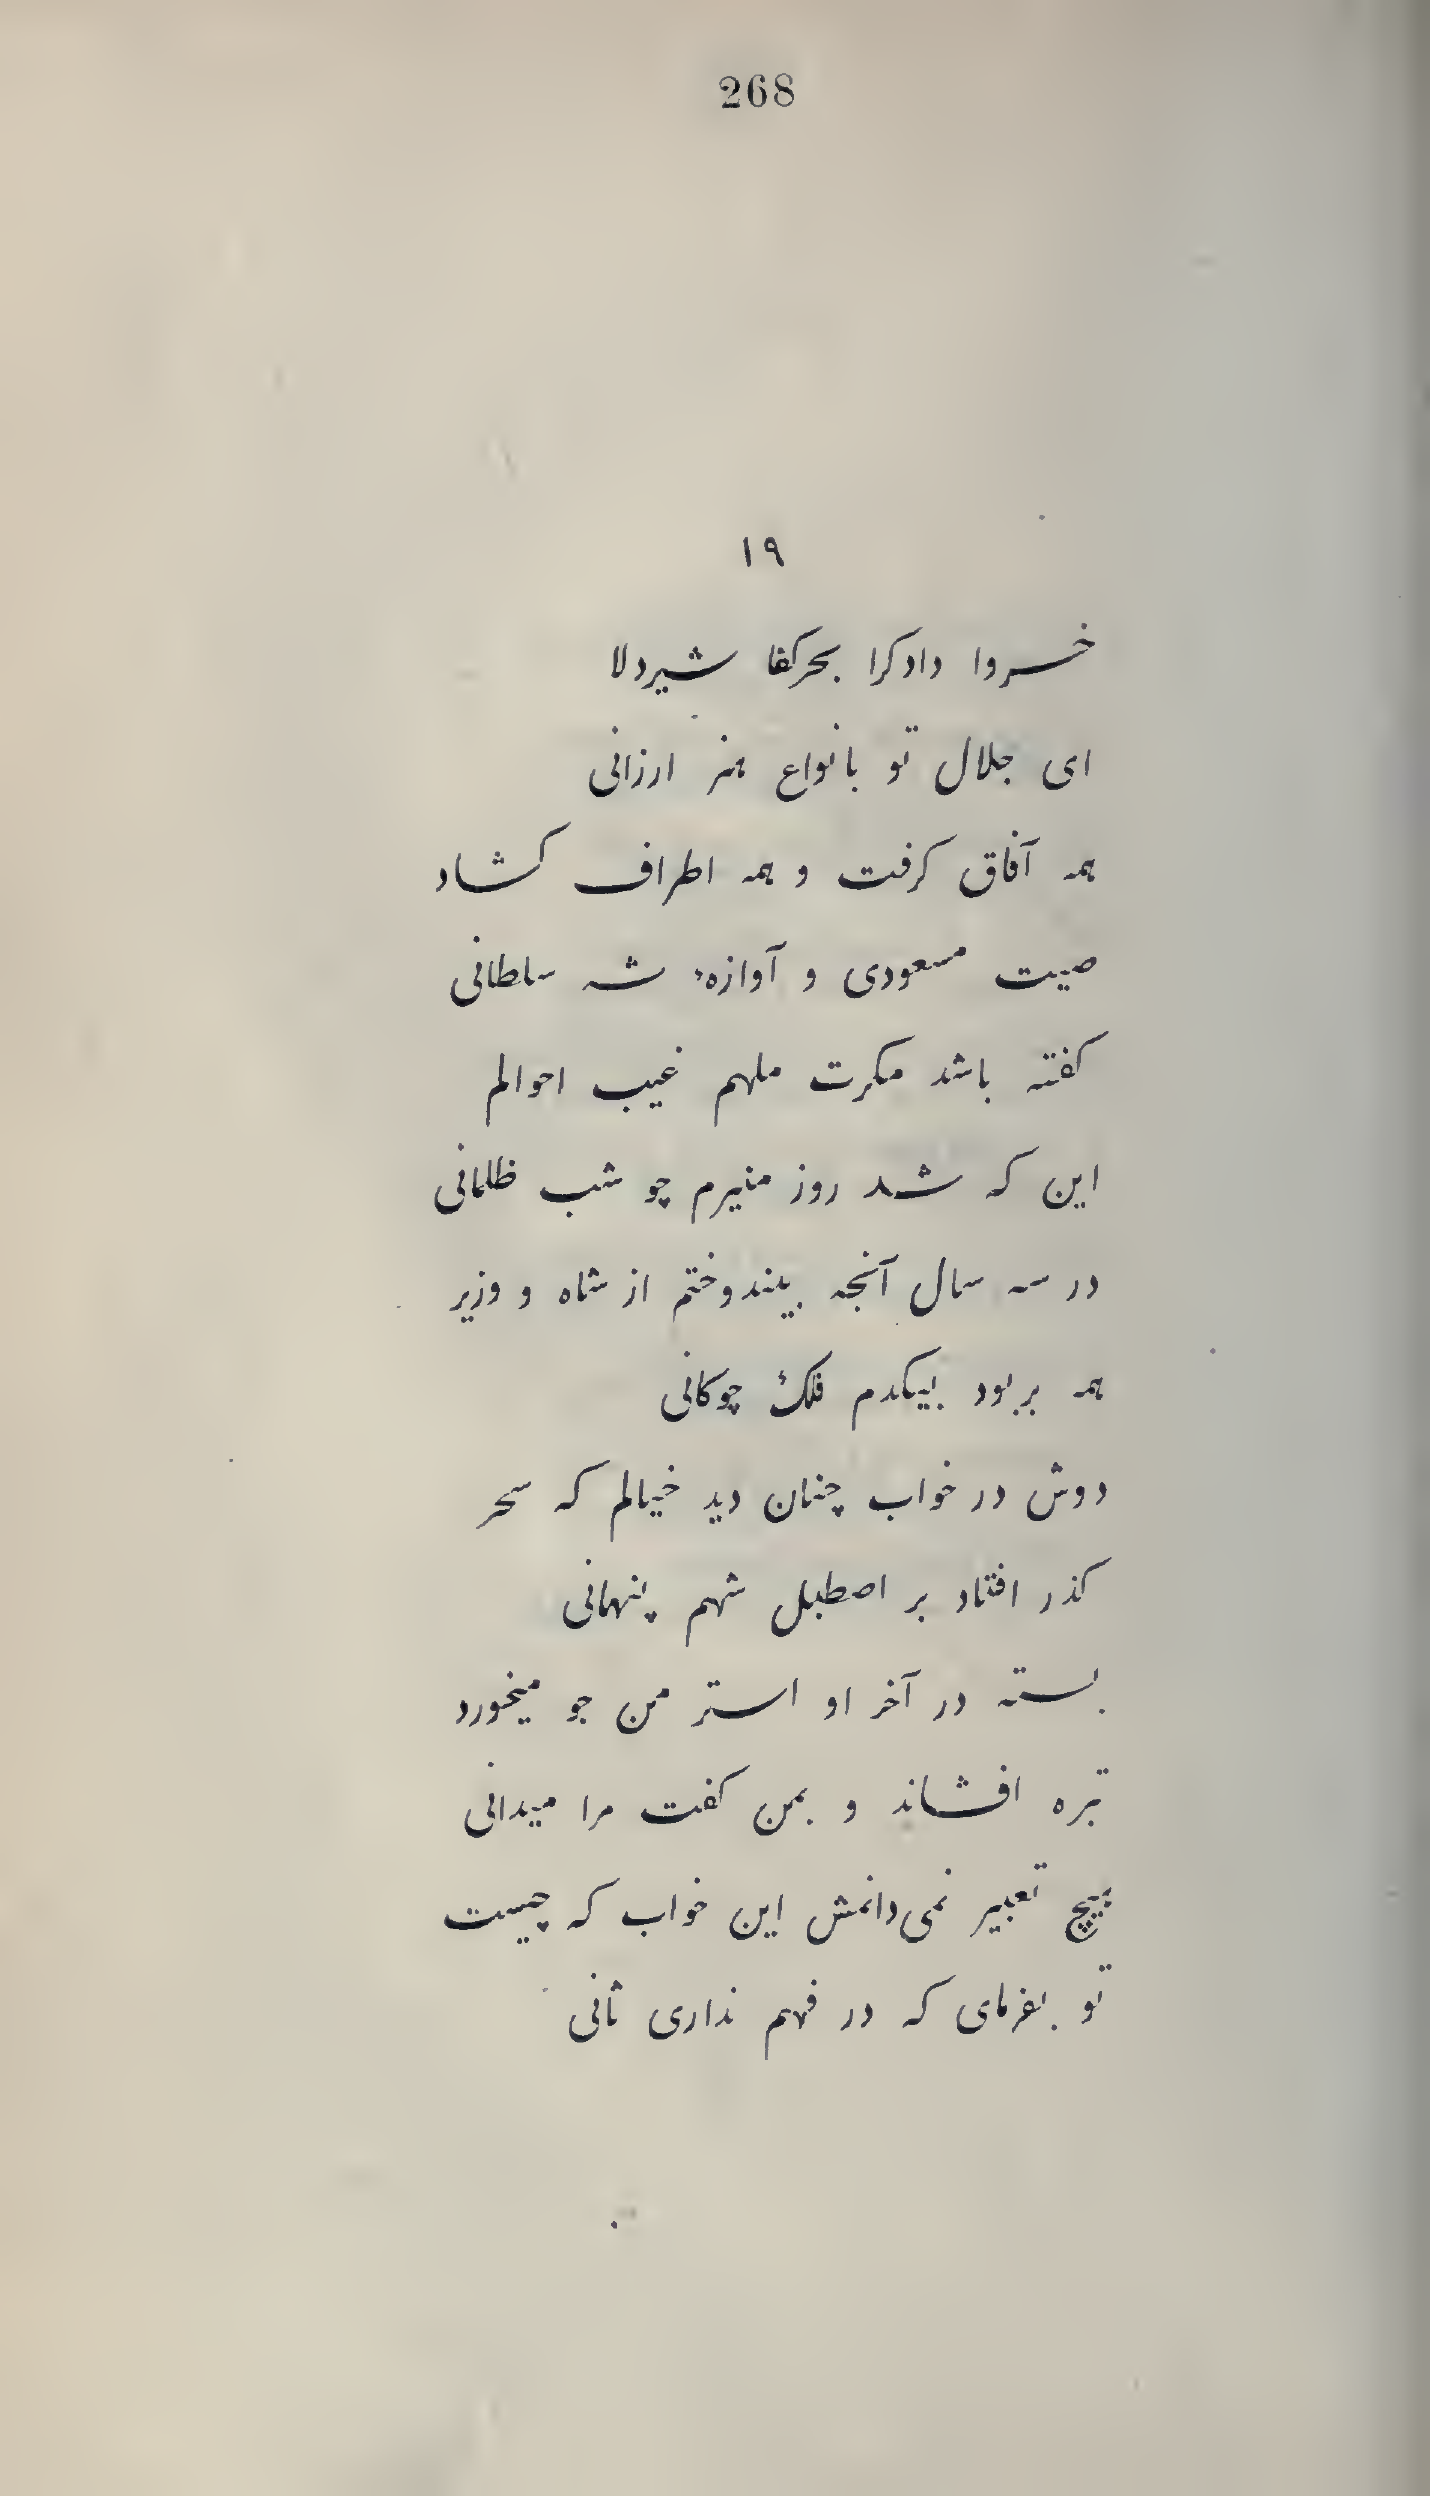 268
١٩
خسروا دادكرا بحركفا شيردلا
اى جلال تو بانواع هنر ارزانى
همه آفاق كرفت و همه اطراف كشاد
صيت مسعودى و آوازهٔ شه سلطانى
كفته باشد مكرت ملهم غيب احوالم
اين كه شد روز منيرم چو شب ظلمانى
در سه سال آنجه بيندوختم از شاه و وزير
همه بربود بيكدم فلك چوكانى
دوش در خواب چنان ديد خيالم كه سحر
كذر افتاد بر اصطبل شهم پنهانى
بسته در آخر او استر من جو ميخورد
تبره افشاند و بمن كفت مرا ميدانى
هيچ تعبير نمى‌دانمش اين خواب كه چيست
تو بفرماى كه در فهم ندارى ثانى